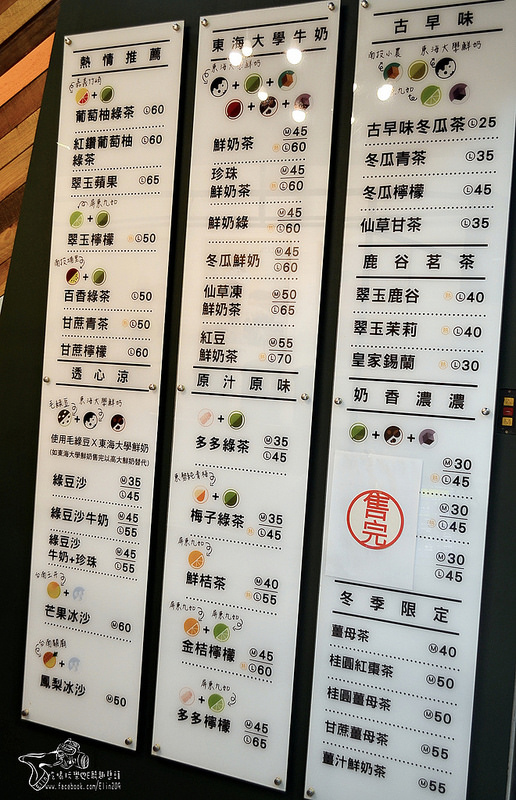 熱情推薦
嘉義竹崎
葡萄柚綠茶 Ⓛ60
紅鑽葡萄柚
綠茶 Ⓛ60
翠玉蘋果 Ⓛ65
屏東九如
翠玉檸檬 Ⓛ50
南投埔里
百香綠茶 Ⓛ50
甘蔗青茶 Ⓛ50
甘蔗檸檬 Ⓛ60
透心涼
毛綠豆 東海大學鮮奶
使用毛綠豆X東海大學鮮奶
(如東海大學鮮奶售完以高大鮮奶替代)
綠豆沙 Ⓜ35
Ⓛ45
綠豆沙牛奶 Ⓜ45
Ⓛ55
綠豆沙
牛奶+珍珠 Ⓜ45
Ⓛ55
台南玉井
芒果冰沙 Ⓜ60
台南關廟
鳳梨冰沙 Ⓜ50
東海大學牛奶
東海大學鮮奶
鮮奶茶 Ⓜ45
Ⓛ60
珍珠
鮮奶茶 Ⓜ45
Ⓛ60
鮮奶綠 Ⓜ45
Ⓛ60
冬瓜鮮奶 Ⓜ45
Ⓛ60
仙草凍
鮮奶茶 Ⓜ50
Ⓛ65
紅豆
鮮奶茶 Ⓜ55
Ⓛ70
原汁原味
多多綠茶 Ⓜ35
Ⓛ45
梅子綠茶 Ⓜ35
Ⓛ50
屏東九如
鮮桔茶 Ⓜ40
Ⓛ55
屏東九如 屏東九如
金桔檸檬 Ⓜ45
Ⓛ60
屏東九如
多多檸檬 Ⓜ45
Ⓛ65
古早味
東海大學鮮奶
九如
古早味冬瓜茶 Ⓛ25
冬瓜青茶 Ⓛ35
冬瓜檸檬 Ⓛ45
仙草甘茶 Ⓛ35
鹿谷茗茶
翠玉鹿谷 Ⓛ40
翠玉茉莉 Ⓛ40
皇家錫蘭 Ⓛ30
奶香濃濃
售完
Ⓜ30
Ⓛ45
Ⓜ30
Ⓛ45
Ⓜ30
Ⓛ45
冬季限定
薑母茶 Ⓜ40
桂圓紅棗茶 Ⓜ50
桂圓薑母茶 Ⓜ50
甘蔗薑母茶 Ⓜ55
薑汁鮮奶茶 Ⓜ55
www.facebook.com/Elin204